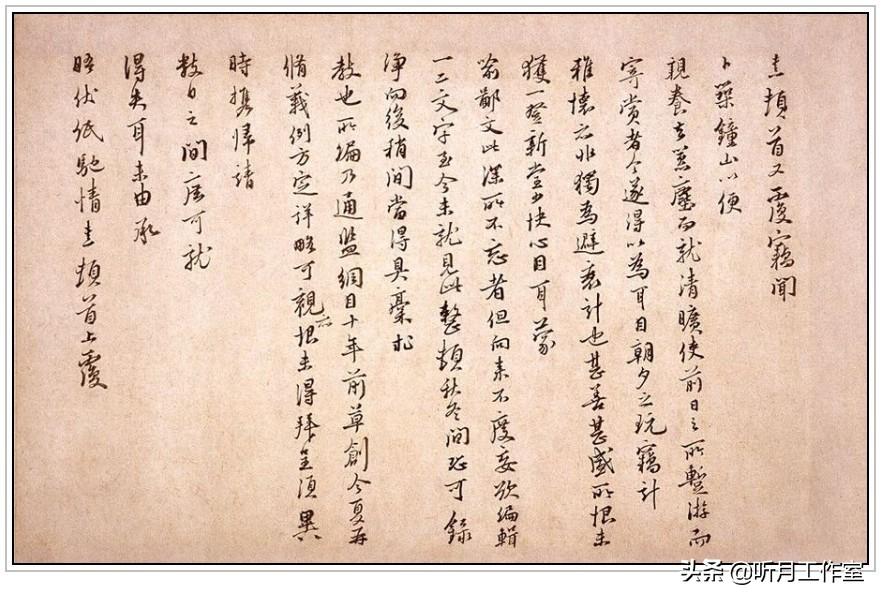 熹頓首又覆竊聞
卜築鐘山以便
親養去囂塵而就清曠使前日之所暫游而
寄賞者今遂得以為耳目朝夕之玩竊計
雅懷亦非獨為避衰計也甚善甚盛所恨未
獲一登新堂少快心目耳蒙
喻鄙文此深所不忘者但向來不度妄欲編輯
一二文字至今未就見此整頓秋冬間恐可錄
淨向後稍間當得具稾求
教也所編乃通鑑綱目十年前草創今夏再
脩義例方定詳略可觀亦恨未得拜呈須異
時攜歸請
數日之間庶可就
得失耳未由承
晤伏紙馳情熹頓首上覆
头条 @听月工作室